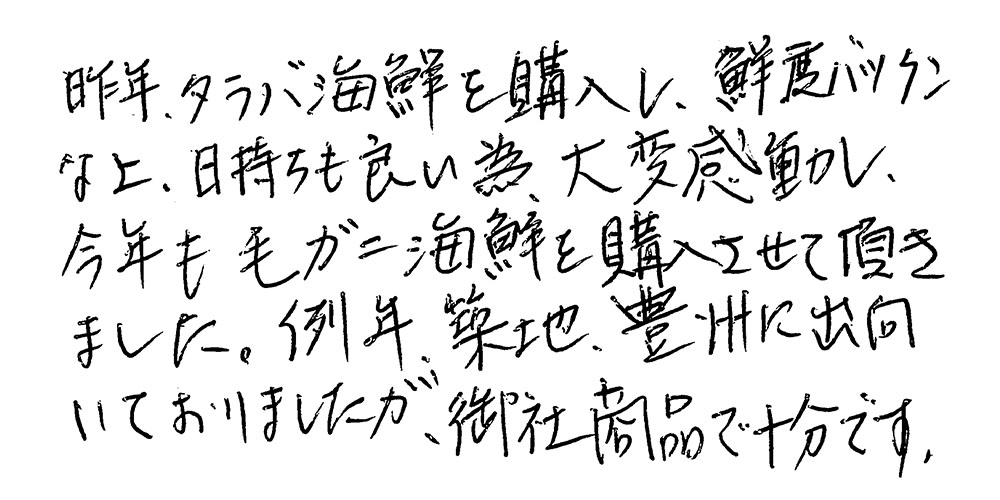 昨年、タラバ海鮮を購入し、鮮度バツグン
な上、日持ちも良い為、大変感動し、
今年も毛ガニ海鮮を購入させて頂き
ました。例年、築地、豊洲に出向
いておりましたが、御社商品で十分です。